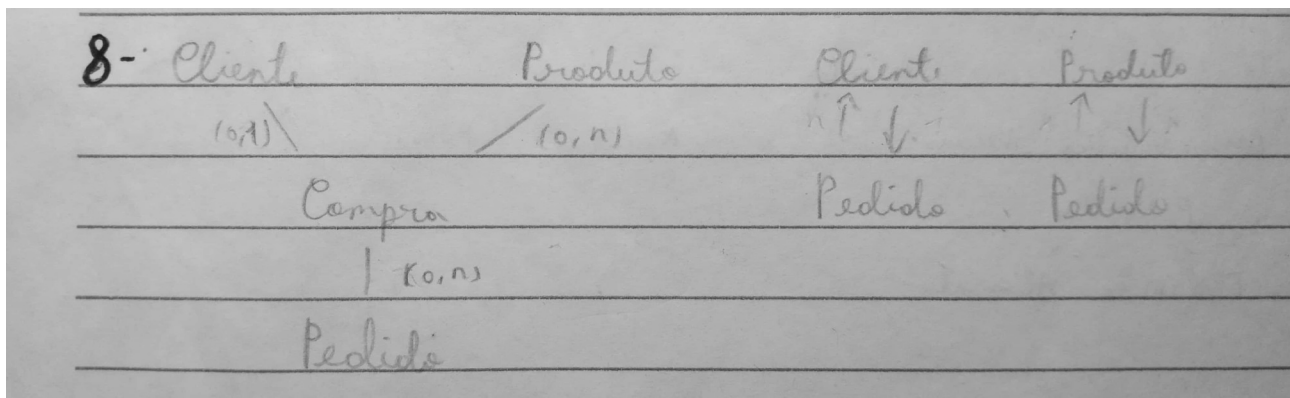 8- Cliente Produto Cliente Produto
(0,1) (0,n) n
Compra Pedido Pedido
(0,n)
Pedido